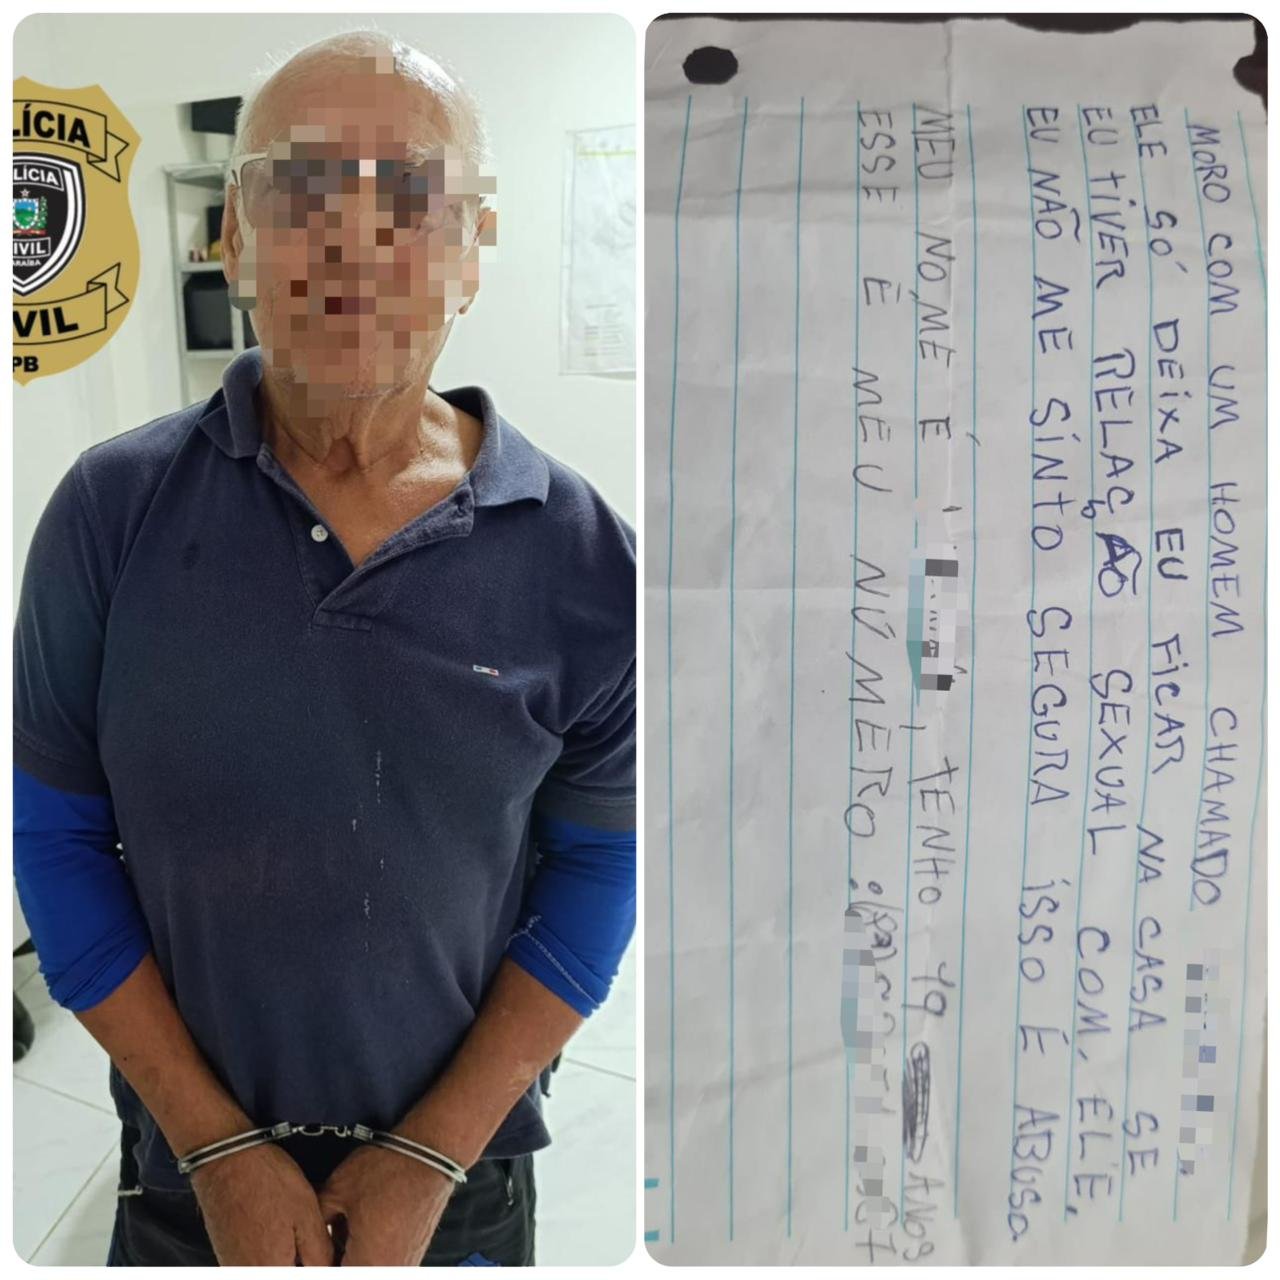 LÍCIA
LÍCIA
CIVIL
PARAÍBA
VIL
PB
MORO COM UM HOMEM CHAMADO
ELE SÓ DEIXA EU FICAR NA CASA SE
EU TIVER RELAÇÃO SEXUAL COM, ELE,
EU NÃO ME SINTO SEGURA ISSO É ABUSO
MEU NOME É , TENHO 19 ANOS
ESSE É MEU NÚMERO: